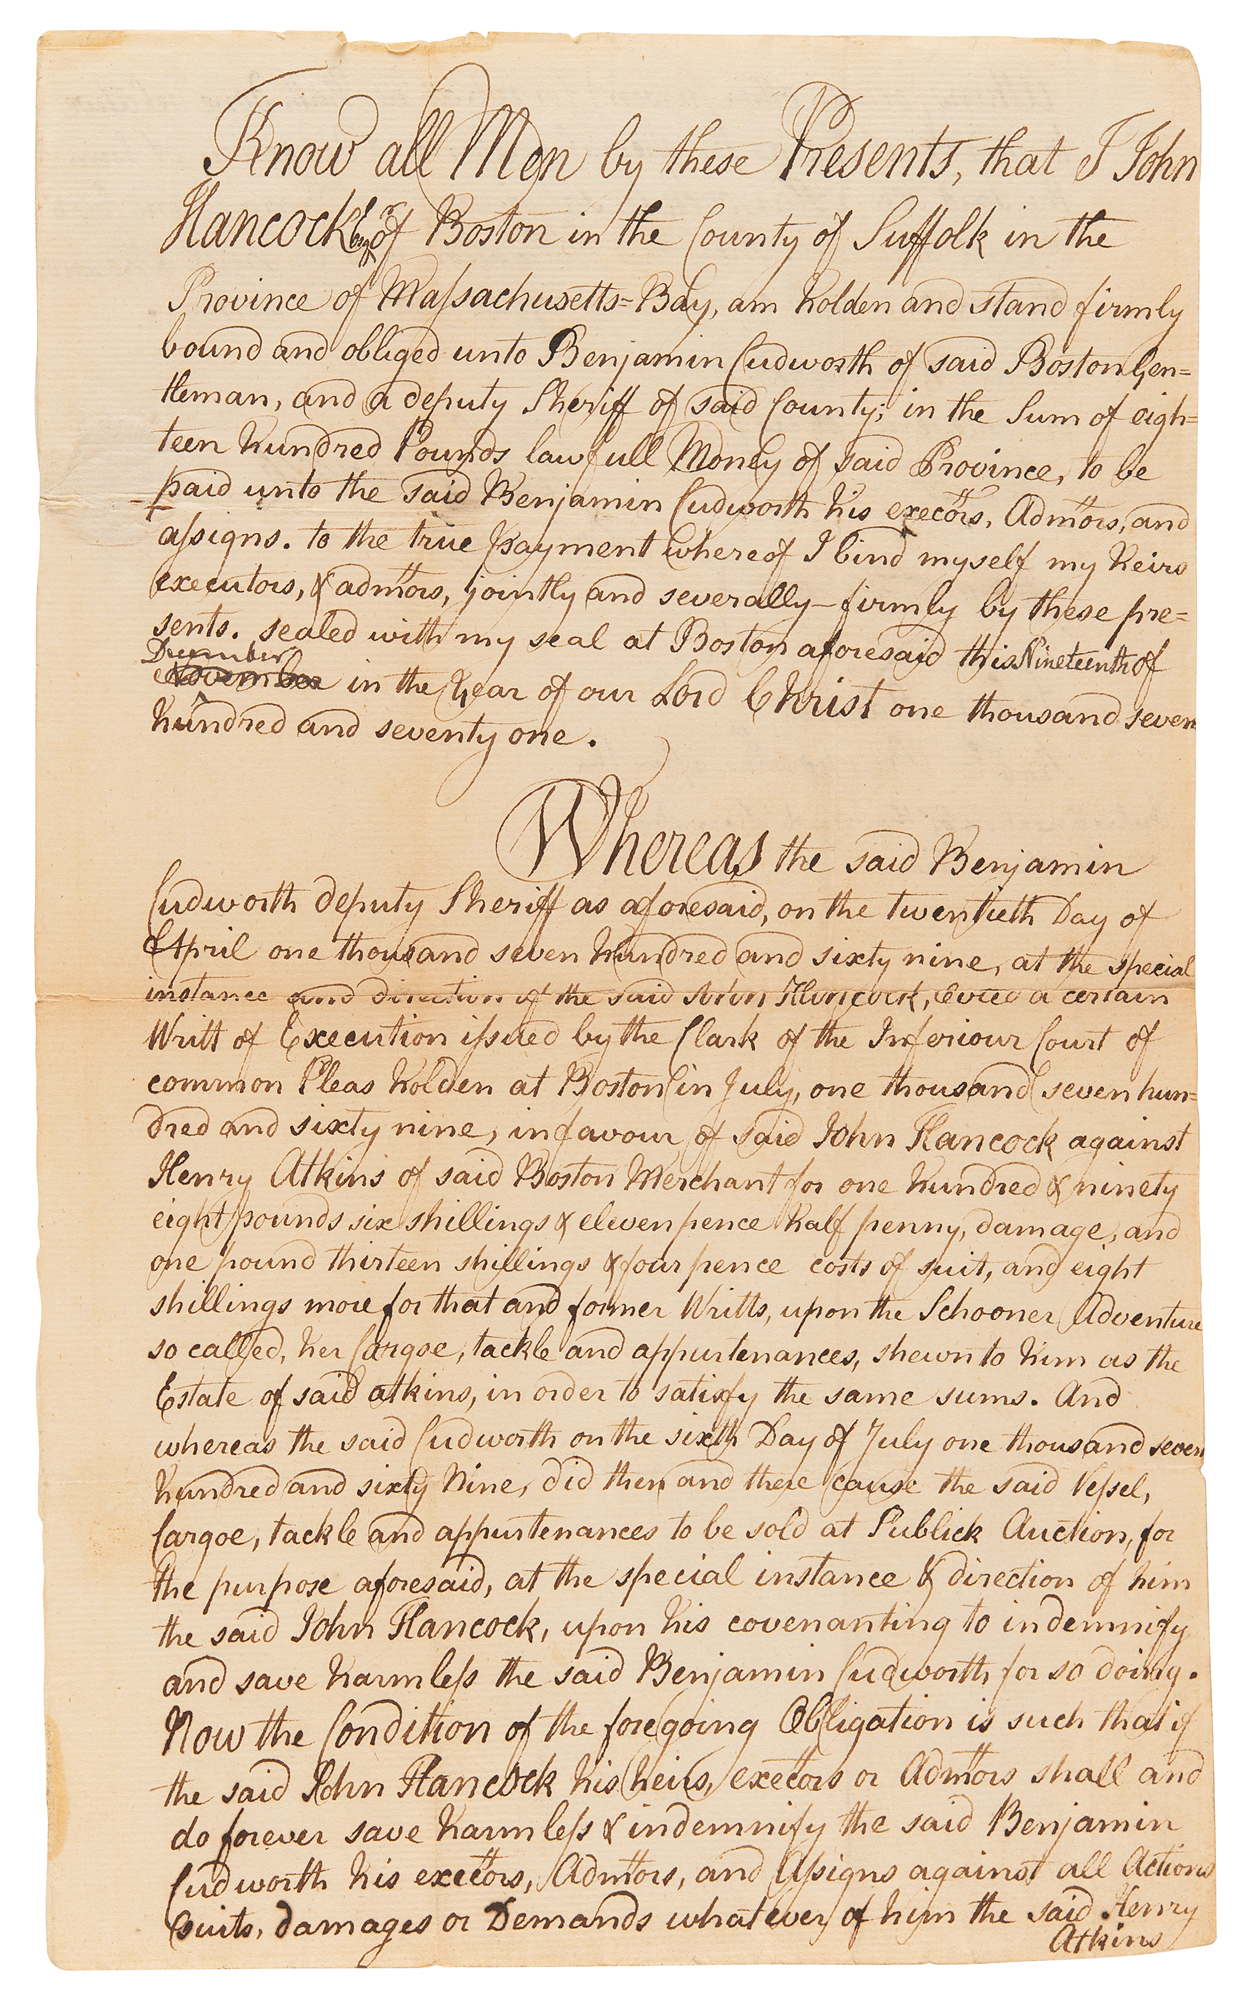 Know all Men by these Presents, that I John
Hancock Esqr of Boston in the County of Suffolk in the
Province of Massachusetts=Bay, am holden and stand firmly
bound and obliged unto Benjamin Cudworth of said Boston Gen=
tleman, and a deputy Sheriff of said County; in the Sum of eigh=
teen hundred Pounds lawfull Money of said Province, to be
paid unto the said Benjamin Cudworth his exectors, Admtors, and
assigns. to the true payment whereof I bind myself my heirs
executors, & admtors, jointly and severally – firmly by these pre=
sents. sealed with my seal at Boston aforesaid this Nineteenth of
December
November in the Year of our Lord Christ one thousand seven
hundred and seventy one.
Whereas the said Benjamin
Cudworth deputy Sheriff as aforesaid, on the twentieth Day of
April one thousand seven hundred and sixty nine, at the special
instance and direction of the said John Hancock, levied a certain
Writt of Execution issued by the Clark of the Inferiour Court of
common Pleas holden at Boston in July, one thousand seven hun=
dred and sixty nine, in favour of said John Hancock against
Henry Atkins of said Boston Merchant for one hundred & ninety
eight pounds six shillings & eleven pence half penny, damage, and
one pound thirteen shillings & four pence costs of suit, and eight
shillings more for that and former Writts, upon the Schooner Adventure
so called, her Cargoe, tackle and appurtenances, shewn to him as the
Estate of said atkins, in order to satisfy the same sums. And
whereas the said Cudworth on the sixth Day of July one thousand seven
hundred and sixty Nine, did then and there cause the said Vessel,
Cargoe, tackle and appurtenances to be sold at Publick Auction, for
the purpose aforesaid, at the special instance & direction of him
the said John Hancock, upon his covenanting to indemnify
and save harmless the said Benjamin Cudworth for so doing.
Now the Condition of the foregoing Obligation is such that if
the said John Hancock his heirs, exectors or Admtors shall and
do forever save harmless & indemnify the said Benjamin
Cudworth his exectors, Admtors, and Assigns against all Actions
Suits, damages or Demands whatever of him the said Henry
Atkins